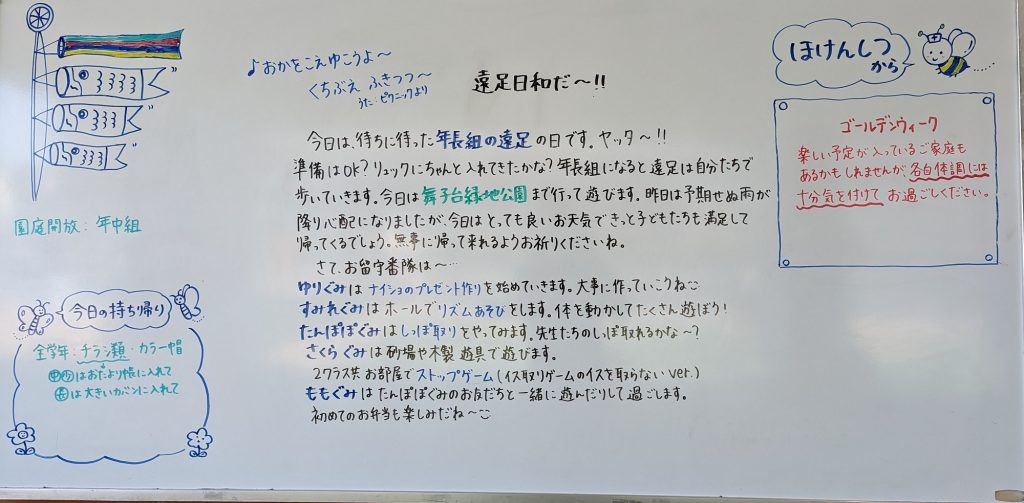 ♪おかをこえゆこうよ〜
くちぶえ ふきつつ〜
うた:ピクニックより
遠足日和だ〜!!
今日は、待ちに待った年長組の遠足の日です。ヤッタ〜!!
準備はOK?リュックにちゃんと入れてきたかな?年長組になると遠足は自分たちで
歩いていきます。今日は舞子台緑地公園まで行って遊びます。昨日は予期せぬ雨が
降り心配になりましたが、今日はとっても良いお天気できっと子どもたちも満足して
帰ってくるでしょう。無事に帰って来れるようお祈りくださいね。
さて、お留守番隊は〜…
ゆりぐみはナイショのプレゼント作りを始めていきます。大事に作っていこうね
すみれぐみはホールでリズムあそびをします。体を動かしてたくさん遊ぼう!
たんぽぽぐみはしっぽ取りをやってみます。先生たちのしっぽ取れるかな〜?
さくらぐみは砂場や木製遊具で遊びます。
2クラス共お部屋でストップゲーム(イス取りゲームのイスを取らないver.)
ももぐみはたんぽぽぐみのお友だちと一緒に遊んだりして過ごします。
初めてのお弁当も楽しみだね〜
園庭開放:年中組
今日の持ち帰り
全学年:チラシ類・カラー帽
はおたより帳に入れて
長は大きいカバンに入れて
ほけんしつ
から
ゴールデンウィーク
楽しい予定が入っているご家庭も
あるかもしれませんが、各自体調には
十分気を付けてお過ごしください。